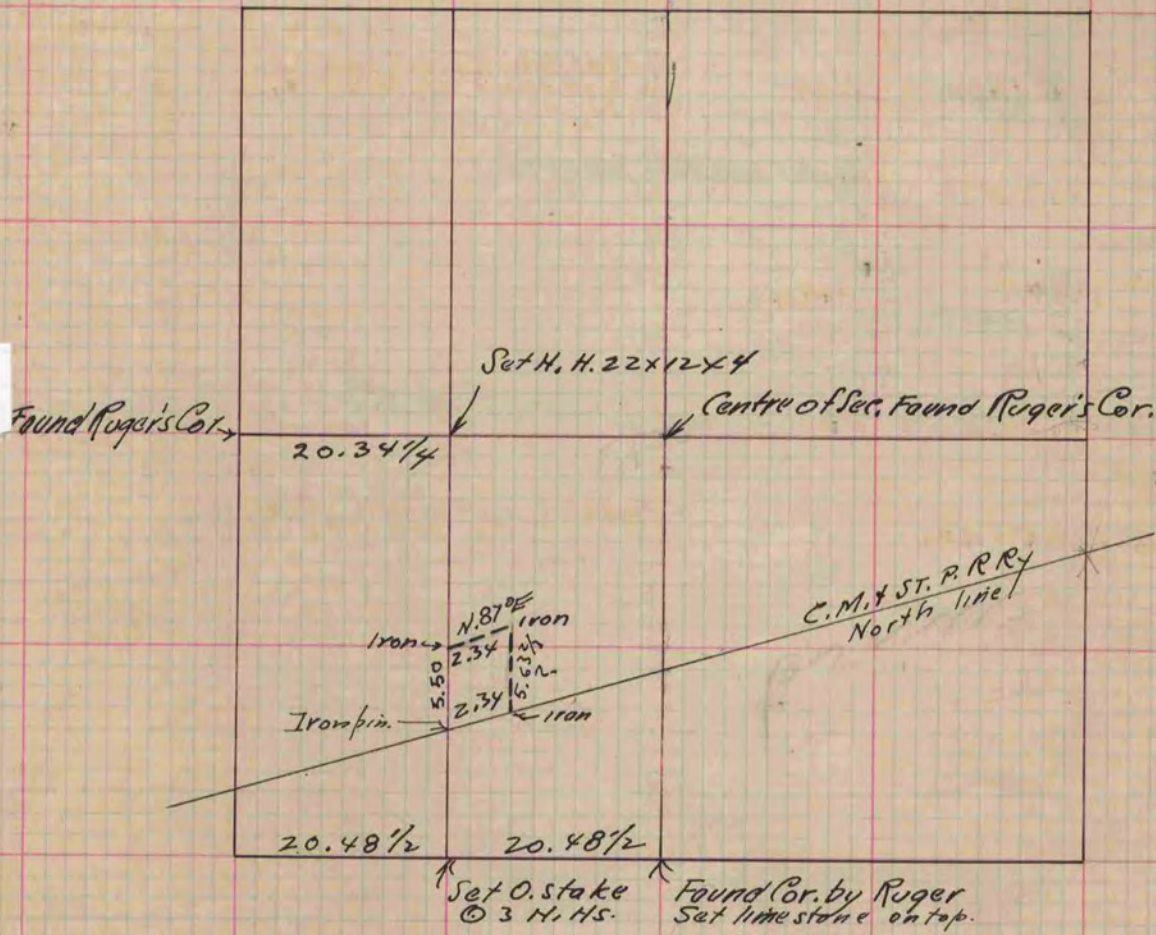 Set H. H. 22x12x4
Found Ruger's Cor.
Centre of Sec. Found Ruger's Cor.
20.34 1/4
C. M. & ST. P. R Ry
North line
N. 87° E
Iron
iron
2.34
5.50
5.63 2/3
2.34
Iron pin.
iron
20.48 1/2
20.48 1/2
Set O. stake
Found Cor. by Ruger
3 H. Hs.
Set limestone on top.